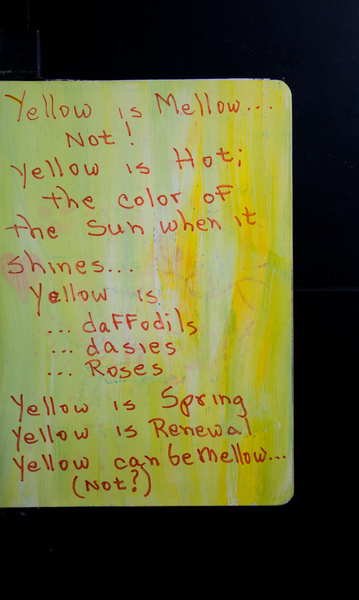 Yellow is Mellow...
Not!
Yellow is Hot;
the color of
the Sun when it
shines...
Yellow is
... daffodils
... dasies
... Roses
Yellow is Spring
Yellow is Renewal
Yellow can be mellow...
(Not?)